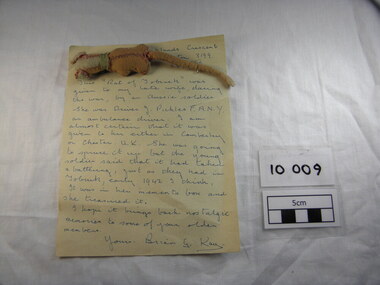 Crescent
"Rat of Tobruk" was
given to my late wife during
the war, by an Aussie soldier
She was Denise J. Pickles F.A.N.Y
an ambulance driver. I am
almost certain that it was
given to her either in Camberley
or Chester U.K. She was going
to refuse it but the young
soldier said that it had taken
a battering, just as they had in
Tobruk, early 1942 I think.
It was in her memento box and
she treasured it.
I hope it brings back nostalgic
memories to some of your older
members
Yours
10 009
5cm